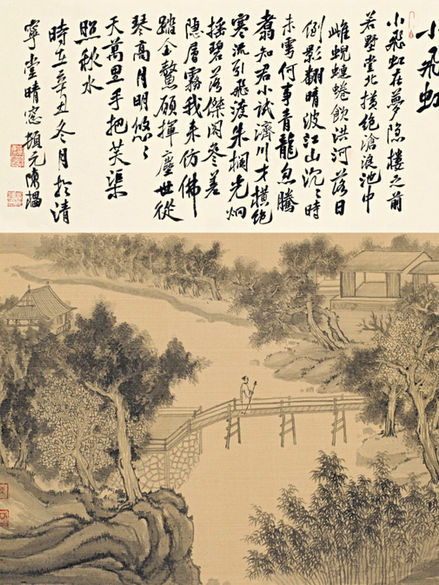 小飛虹
小飛虹在夢隱樓之前
若墅堂北橫絕滄浪池中
雌蜺連蜷飲洪河落日
倒影翻晴波江山沉〻時
未雩何事青龍忽騰
翥知君小試濟川才橫絕
寒流引飛渡朱欄光炯
搖碧落傑閣參差
隱層霧我來仿佛
踏金鰲願揮塵世從
琴高月明悠〻
天萬里手把芙渠
照秋水
時在辛丑冬月於清
寧堂晴窓